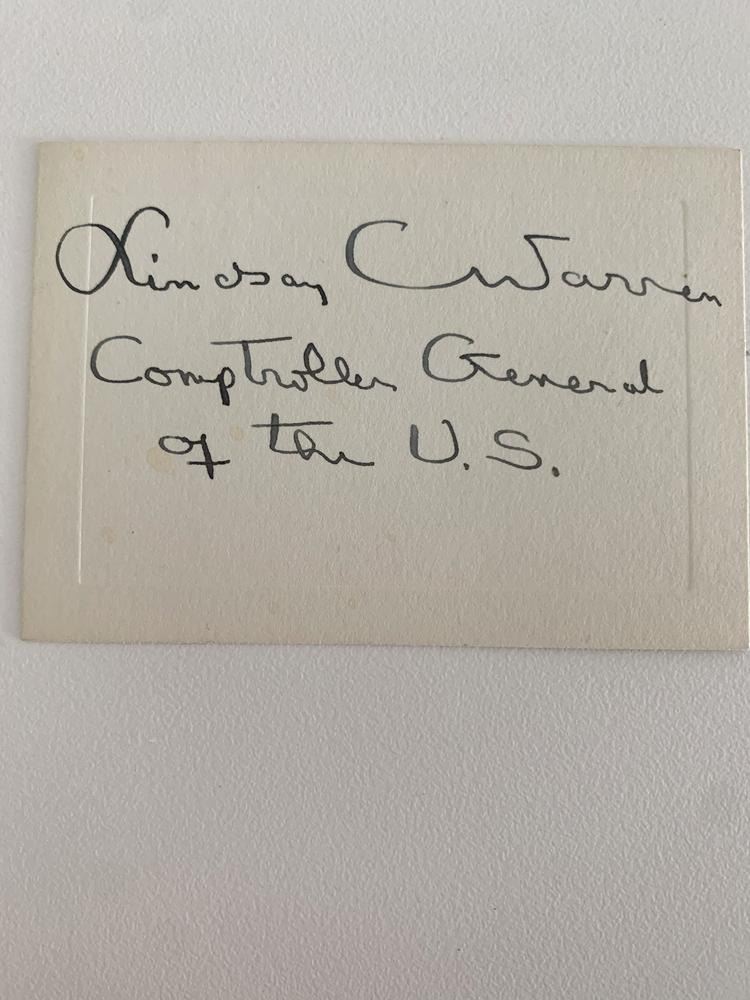 Lindsay C Warren
Comptroller General
of the U.S.